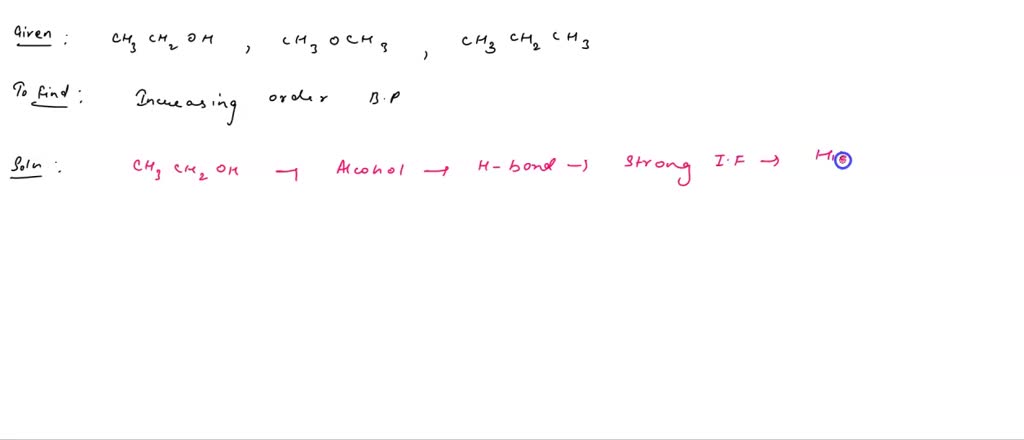 Given : CH3 CH2 OH , CH3 O CH3 , CH3 CH2 CH3
To find : Increasing order B.P
Soln : CH3 CH2 OH → Alcohol → H-bond → Strong I.F →